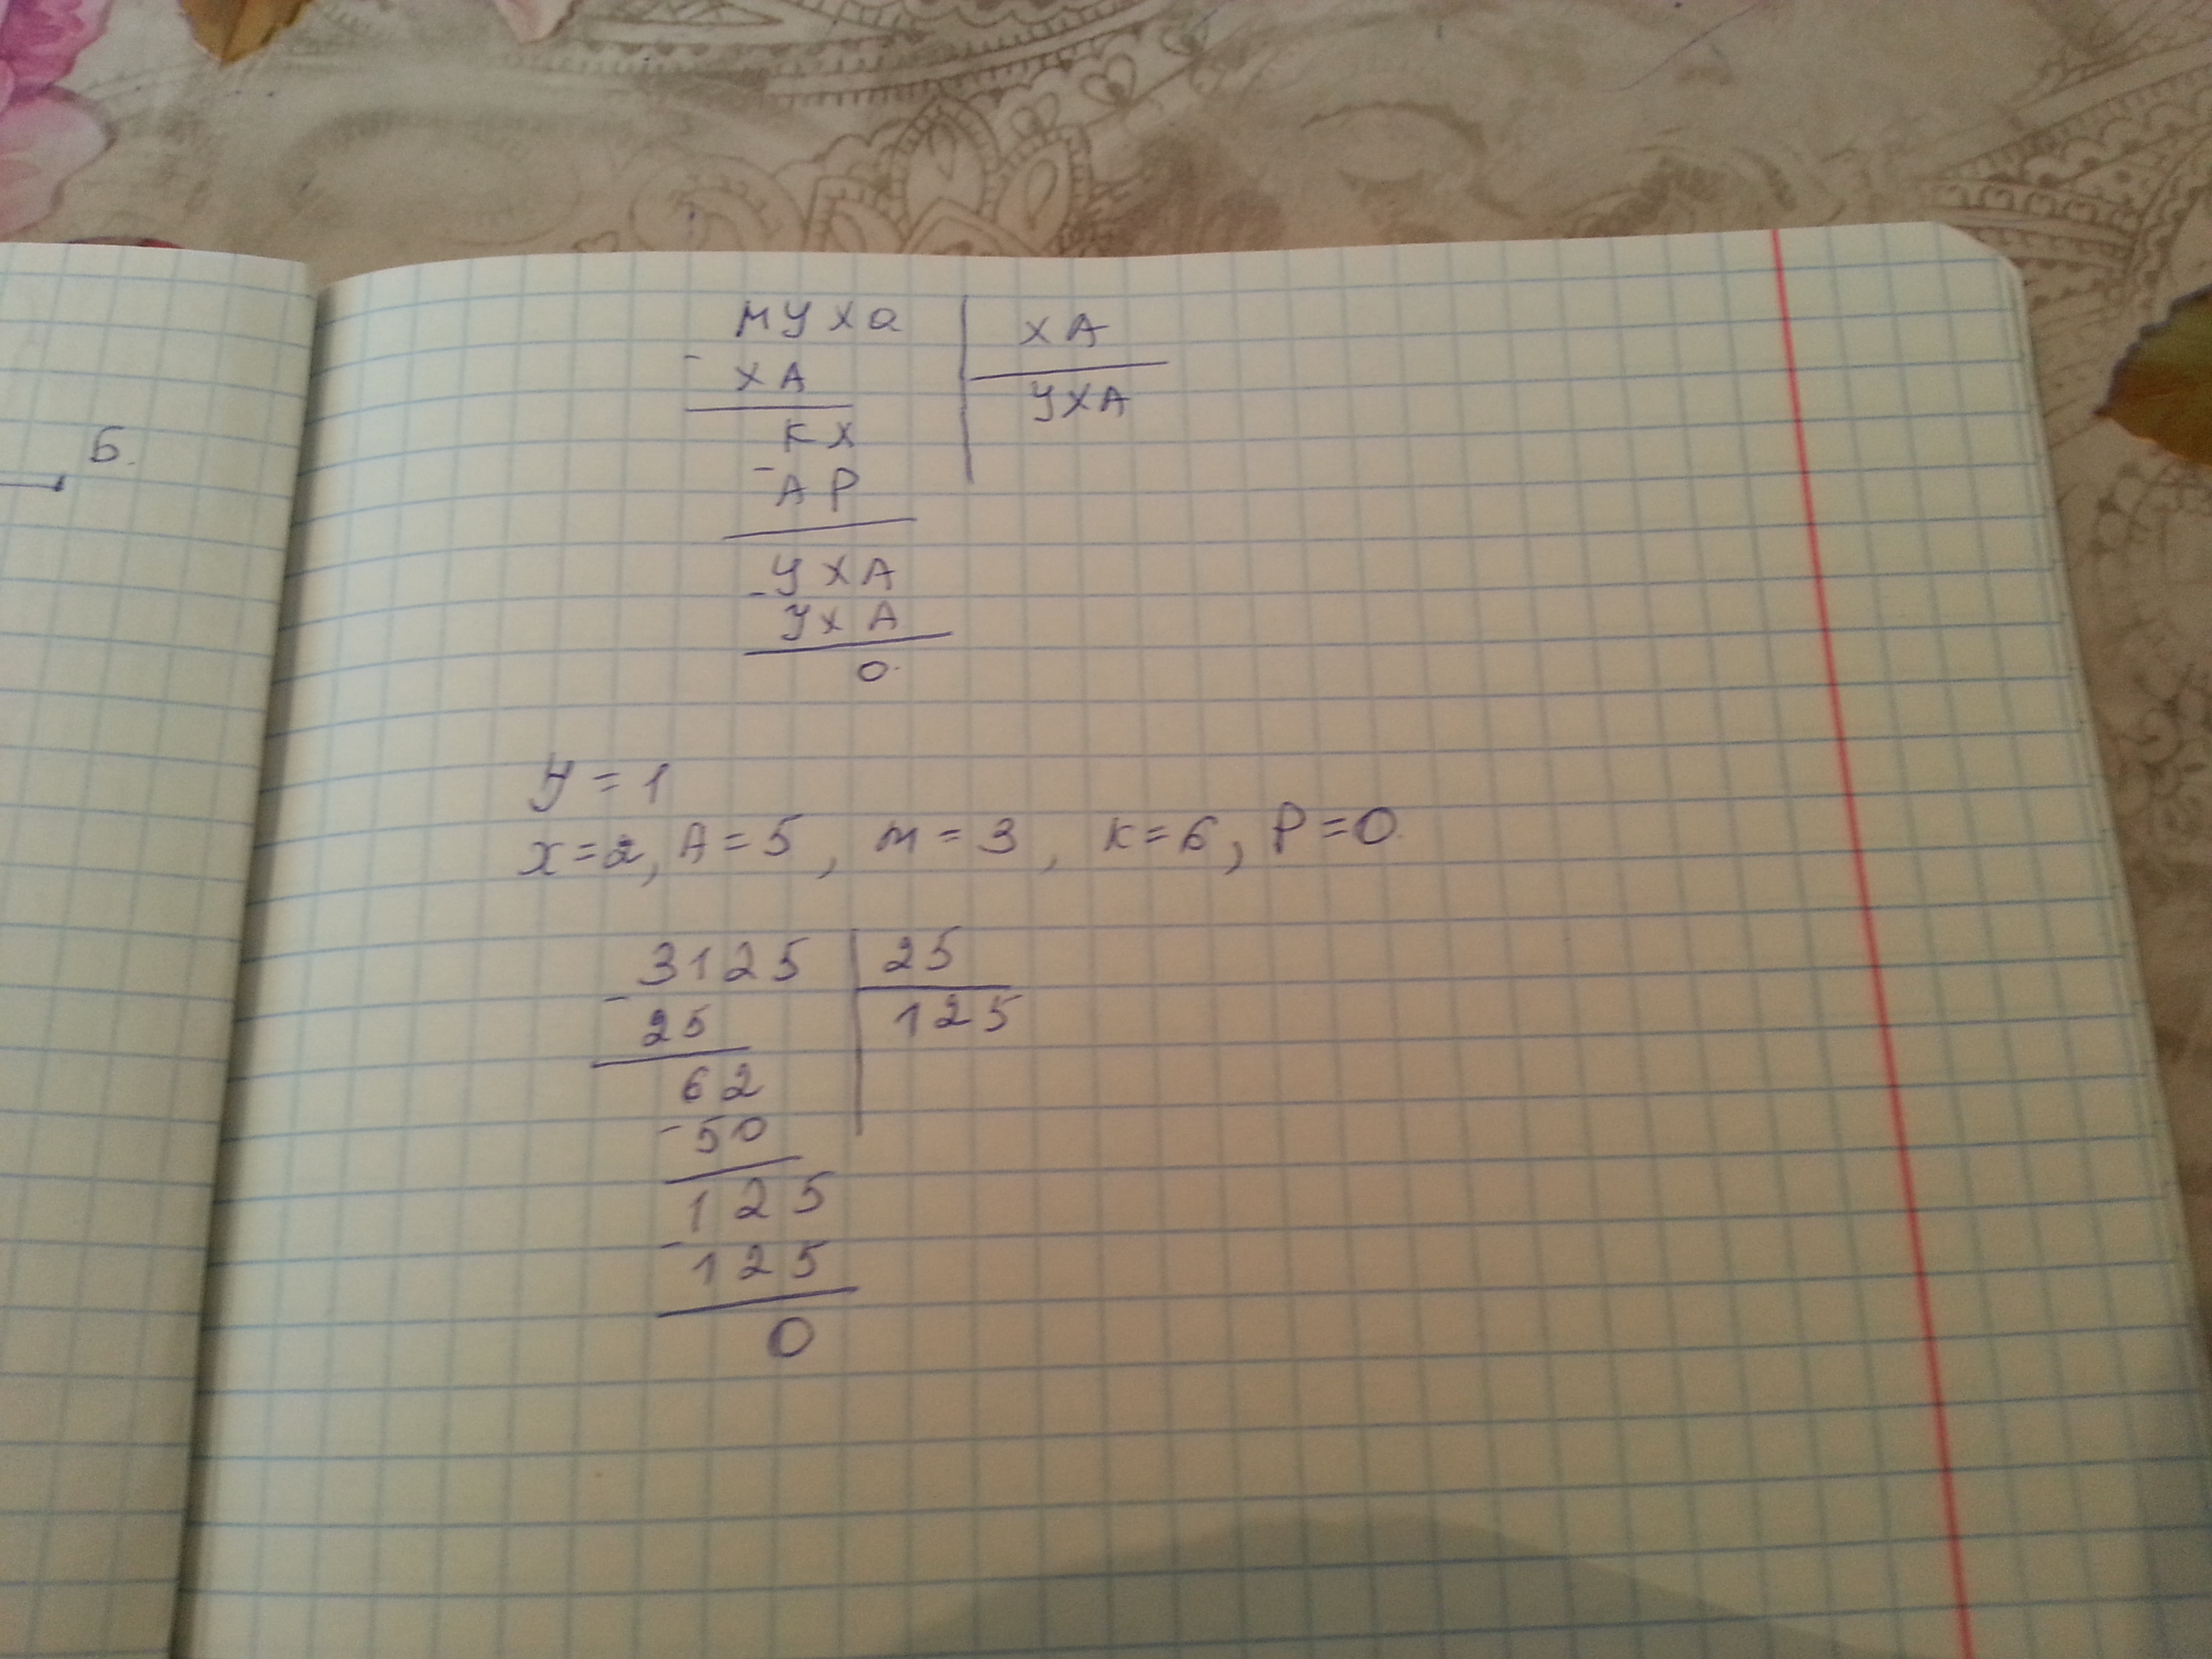 Б.
МУХа | ХА
- ХА | УХА
КХ
- АР
УХА
- УХА
0.
У = 1
х = 2, А = 5, м = 3, к = 6, Р = 0.
3125 | 25
- 25 | 125
62
- 50
125
- 125
0